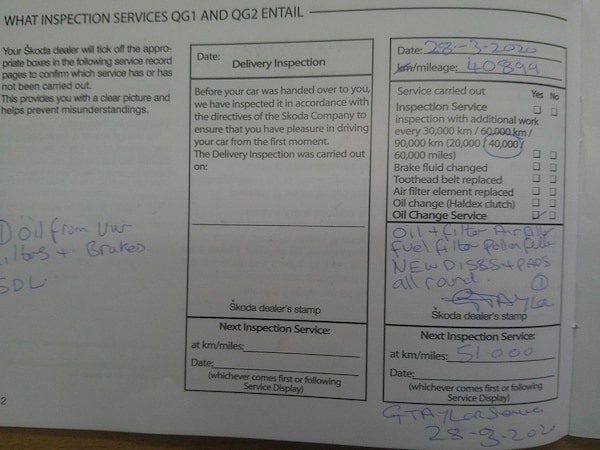 WHAT INSPECTION SERVICES QG1 AND QG2 ENTAIL
Your Škoda dealer will tick off the appro-
priate boxes in the following service record
pages to confirm which service has or has
not been carried out.
This provides you with a clear picture and
helps prevent misunderstandings.
oil from
+ Brakes
SDL
2
Date:
Delivery Inspection
Before your car was handed over to you,
we have inspected it in accordance with
the directives of the Skoda Company to
ensure that you have pleasure in driving
your car from the first moment.
The Delivery Inspection was carried out
on:
Škoda dealer's stamp
Next Inspection Service:
at km/miles:
Date:
(whichever comes first or following
Service Display)
Date: 28-3-2020
km/mileage: 40899
Service carried out Yes No
Inspection Service
inspection with additional work
every 30,000 km / 60,000 km /
90,000 km (20,000 / 40,000 /
60,000 miles)
Brake fluid changed
Toothead belt replaced
Air filter element replaced
Oil change (Haldex clutch)
Oil Change Service
Oil + filter Air filter
Fuel filter Pollen filter
NEW DISSS + PADS
all round. 1
GTAYLor
Škoda dealer's stamp
Next Inspection Service:
at km/miles: 51000
Date:
(whichever comes first or following
Service Display)
GTAYLor
28-3-2020